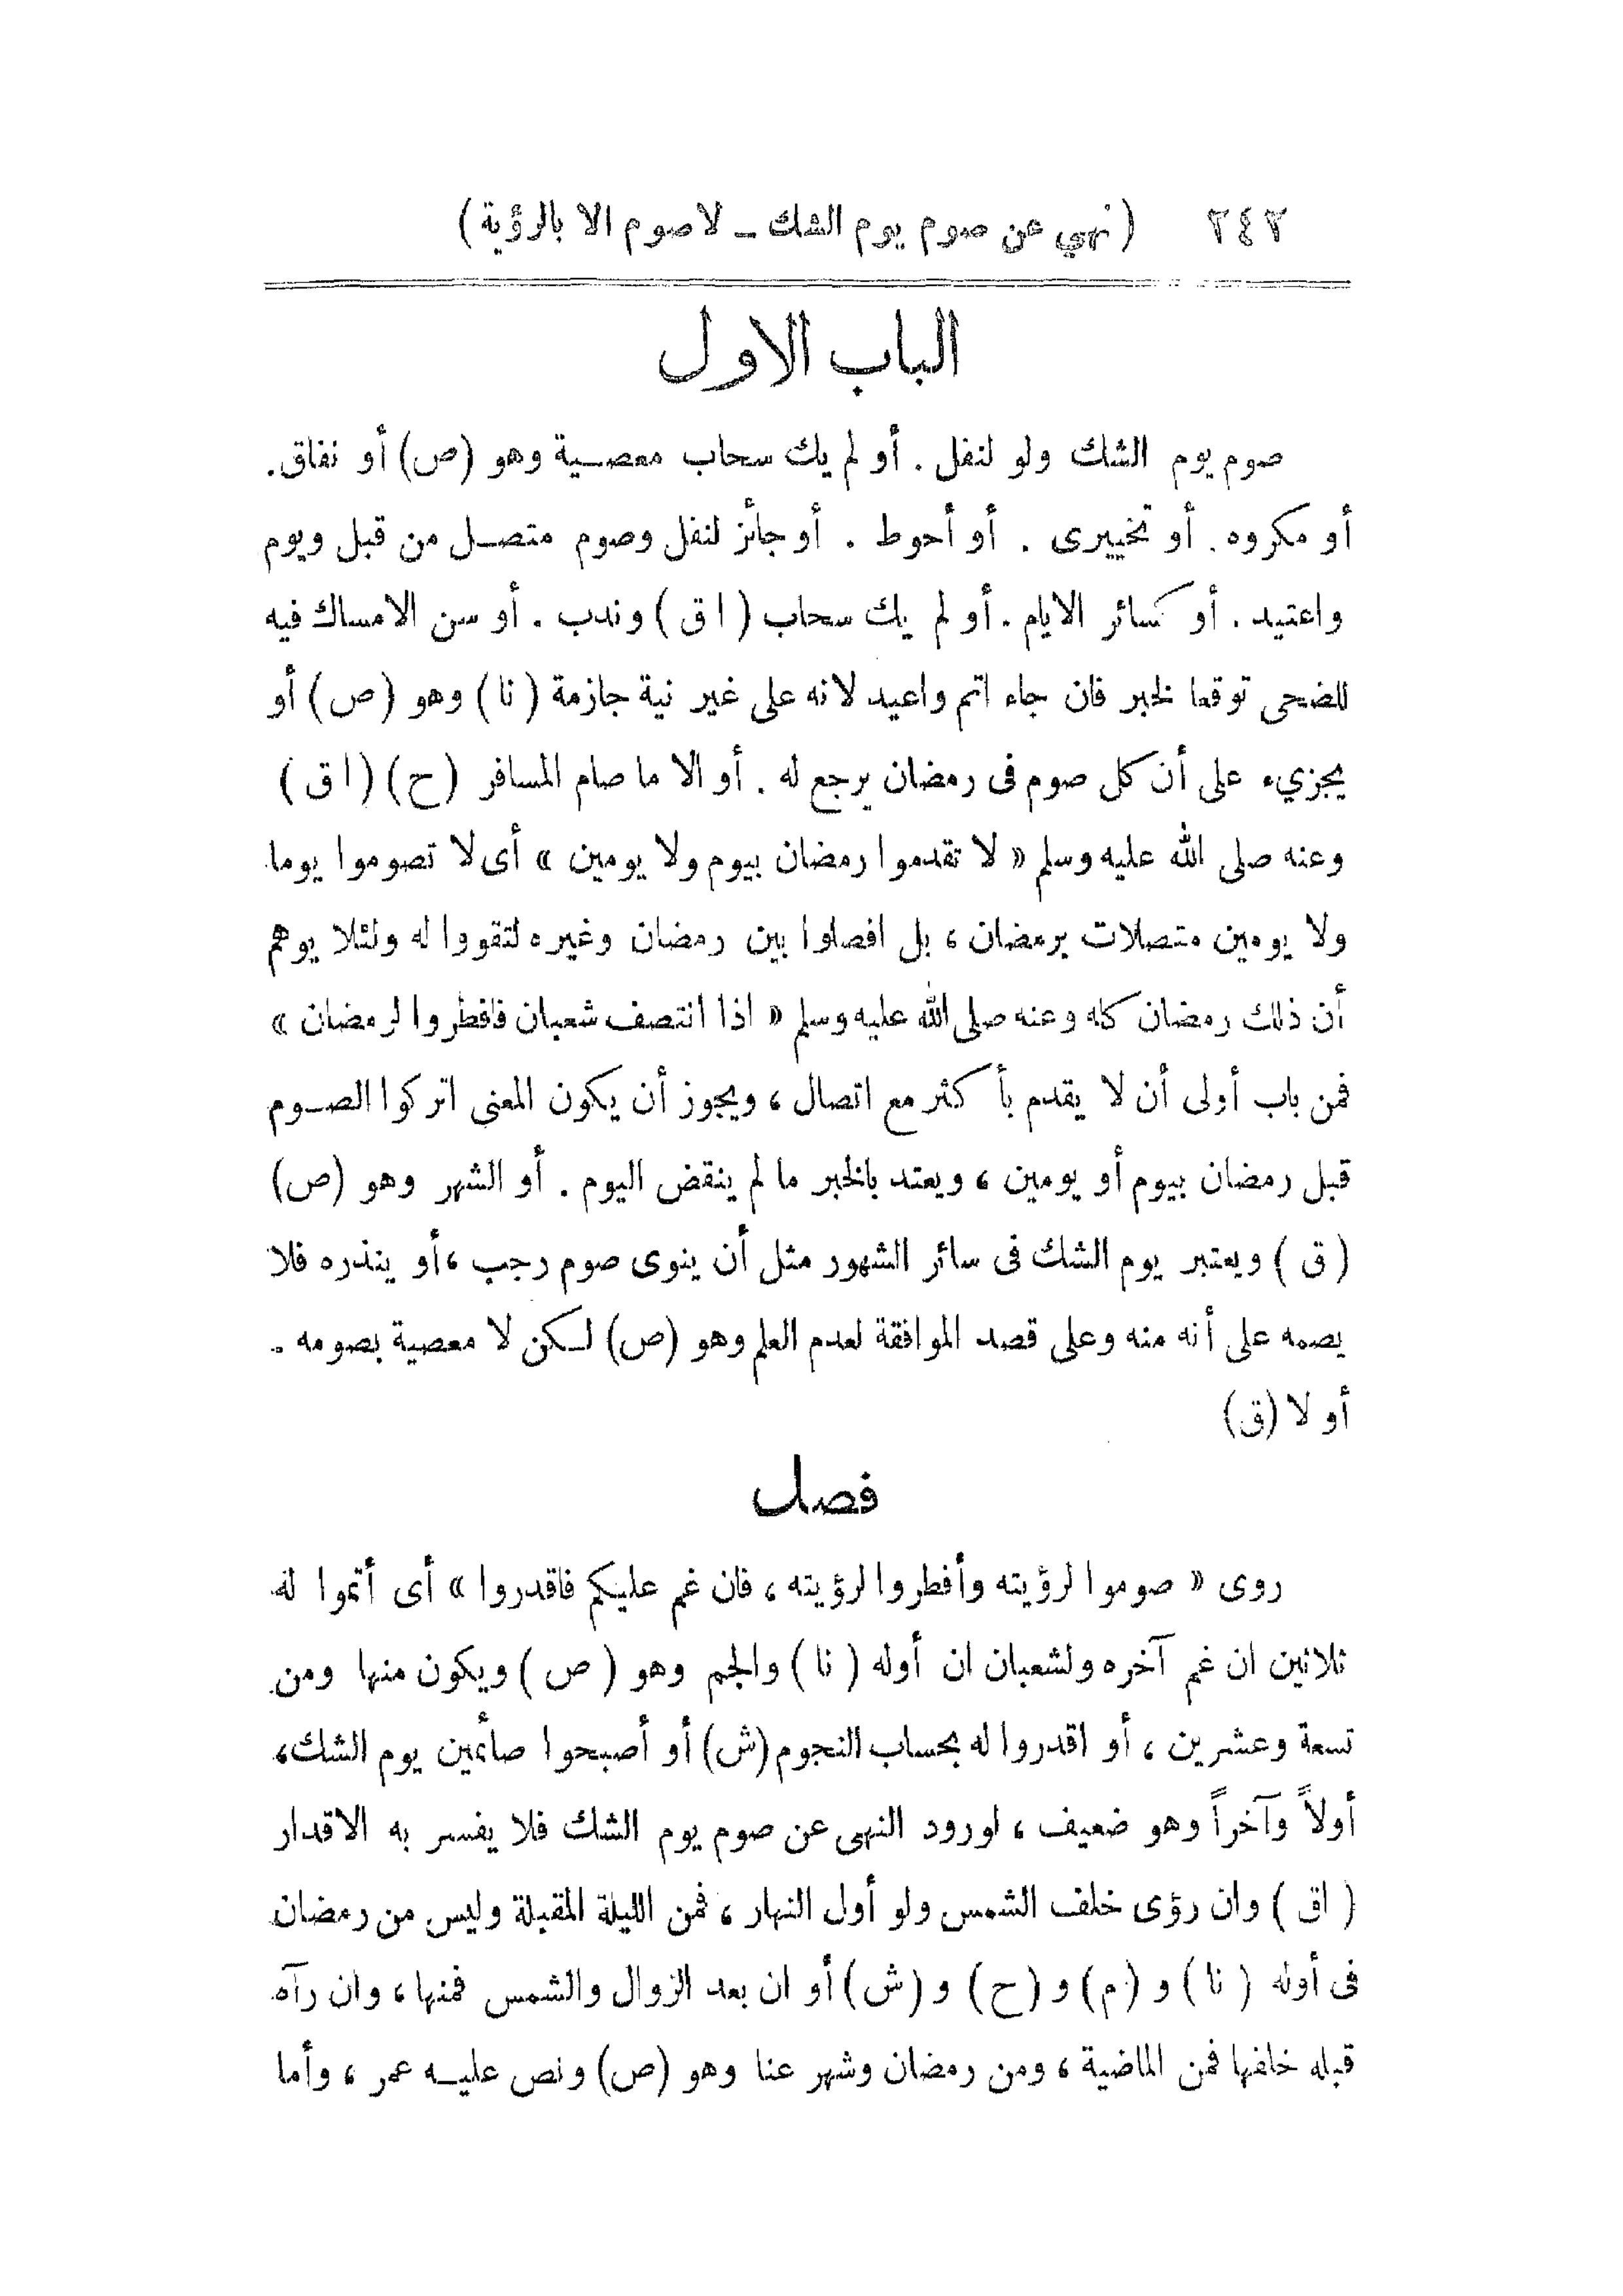 ٢٤٢ (نهي عن صوم يوم الشك ــ لا صوم الا بالرؤية)
الباب الاول
صوم يوم الشك ولو لنفل . أو لم يك سحاب معصية وهو (ص) أو نفاق.
أو مكروه. أو تخييرى . أو أحوط . أو جائز لنفل وصوم متصل من قبل ويوم
واعتيد . أو كسائر الايام . أو لم يك سحاب ( اق ) وندب . أو سن الامساك فيه
للضحى توقعا لخبر فان جاء اتم واعيد لانه على غير نية جازمة ( نا ) وهو (ص) أو
يجزيء على أن كل صوم فى رمضان يرجع له . أو الا ما صام المسافر (ح) ( اق )
وعنه صلى الله عليه وسلم « لا تقدموا رمضان بيوم ولا يومين » أى لا تصوموا يوما
ولا يومين متصلات برمضان ، بل افصلوا بين رمضان وغيره لتقووا له ولئلا يوهم
أن ذلك رمضان كله وعنه صلى الله عليه وسلم « اذا انتصف شعبان فافطروا لرمضان »
فمن باب أولى أن لا يقدم بأكثر مع اتصال ، ويجوز أن يكون المعنى اتركوا الصوم
قبل رمضان بيوم أو يومين ، ويعتد بالخبر ما لم ينقض اليوم . أو الشهر وهو (ص)
( ق ) ويعتبر يوم الشك فى سائر الشهور مثل أن ينوى صوم رجب ،أو ينذره فلا
يصمه على أنه منه وعلى قصد الموافقة لعدم العلم وهو (ص) لكن لا معصية بصومه .
أو لا (ق)
فصل
روى « صوموا لرؤيته وأفطروا لرؤيته ، فان غم عليكم فاقدروا » أى أتموا له
ثلاثين ان غم آخره ولشعبان ان أوله ( نا ) والجم وهو ( ص ) ويكون منها ومن
تسعة وعشرين ، أو اقدروا له بحساب النجوم (ش) أو أصبحوا صائمين يوم الشك،
أولاً وآخراً وهو ضعيف ، لورود النهى عن صوم يوم الشك فلا يفسر به الاقدار
( اق ) وان رؤى خلف الشمس ولو أول النهار ، فمن الليلة المقبلة وليس من رمضان
فى أوله ( نا ) و (م) و (ح) و (ش) أو ان بعد الزوال والشمس فمنها ، وان رآه
قبله خلفها فمن الماضية ، ومن رمضان وشهر عنا وهو (ص) ونص عليه عمر ، وأما